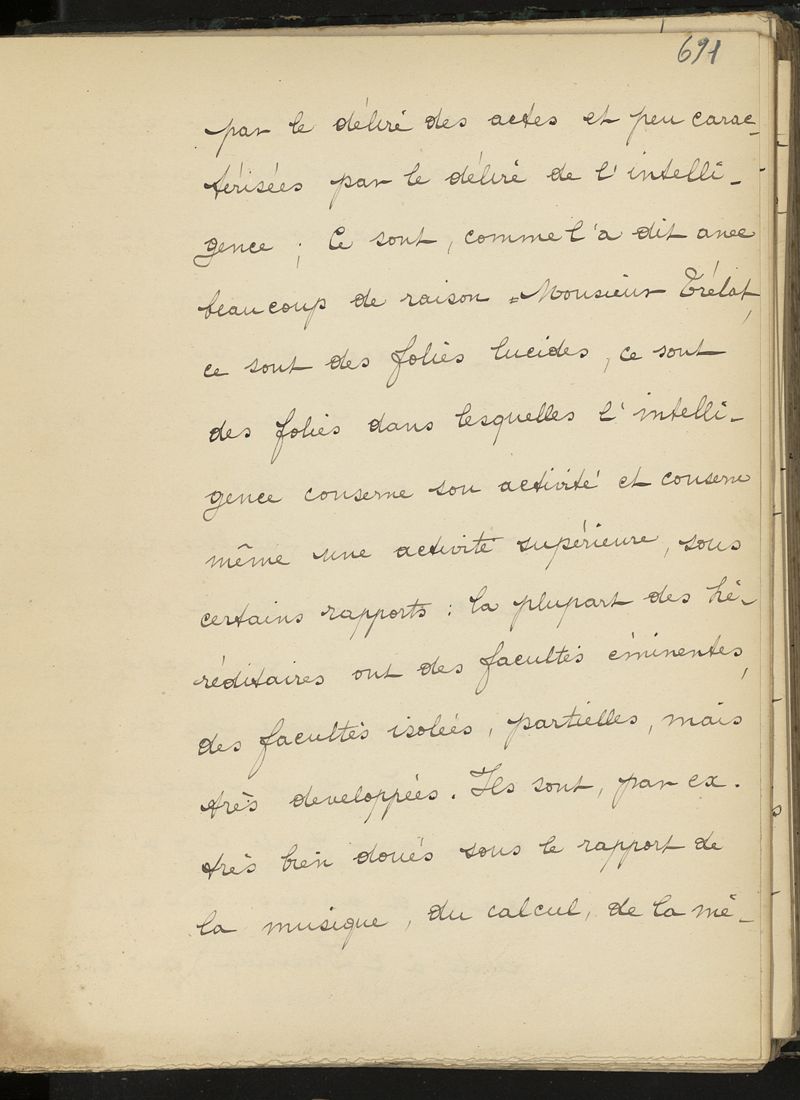 691
par le délire des actes et peu carac-
térisées par le délire de l'intelli-
gence ; Ce sont, comme l'a dit avec
beaucoup de raison =Monsieur Trélat,
ce sont des folies lucides, ce sont
des folies dans lesquelles l'intelli-
gence conserve son activité et conserve
même une activité supérieure, sous
certains rapports : la plupart des hé-
réditaires ont des facultés éminentes,
des facultés isolées, partielles, mais
très developpées. Ils sont, par ex.
très bien doués sous le rapport de
la musique, du calcul, de la mé-